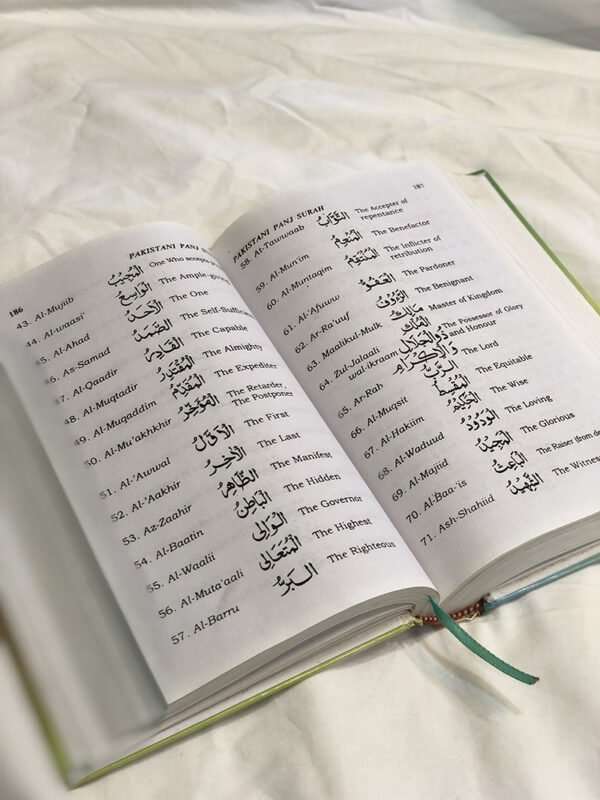 186
PAKISTANI PANJ
43. Al-Mujiib الْمُجِيْبُ One Who
44. Al-waasi' الْوَاسِعُ The
45. Al-Ahad الْأَحَدُ The One
46. As-Samad الصَّمَدُ The
47. Al-Qaadir الْقَادِرُ The Capable
48. Al-Muqtadir الْمُقْتَدِرُ The Almighty
49. Al-Muqaddim الْمُقَدِّمُ The Expediter
50. Al-Mu'akhkhir الْمُؤَخِّرُ The Retarder,
The Postponer
51. Al-'Awwal الْأَوَّلُ The First
52. Al-'Aakhir الْآخِرُ The Last
53. Az-Zaahir الظَّاهِرُ The Manifest
54. Al-Baatin الْبَاطِنُ The Hidden
55. Al-Waalii الْوَالِي The Governor
56. Al-Muta'aali الْمُتَعَالِي The Highest
57. Al-Barru الْبَرُّ The Righteous
PAKISTANI PANJ SURAH
187
58. At-Tawwaab التَّوَّابُ The Accepter of
repentance
59. Al-Mun'im الْمُنْعِمُ The Benefactor
60. Al-Muntaqim الْمُنْتَقِمُ The Inflicter of
retribution
61. Al-'Afuww الْعَفُوُّ The Pardoner
62. Ar-Ra'uuf الرَّءُوْفُ The Benignant
63. Maalikul-Mulk مَالِكُ الْمُلْكِ Master of Kingdom
64. Zul-Jalaali ذُو الْجَلَالِ The Possessor of Glory
wal-ikraam وَالْإِكْرَامِ and Honour
65. Ar-Rab الرَّبُّ The Lord
66. Al-Muqsit الْمُقْسِطُ The Equitable
67. Al-Hakiim الْحَكِيْمُ The Wise
68. Al-Waduud الْوَدُوْدُ The Loving
69. Al-Majiid الْمَجِيْدُ The Glorious
70. Al-Baa-'is الْبَاعِثُ The Raiser (from
71. Ash-Shahiid الشَّهِيْدُ The Witness